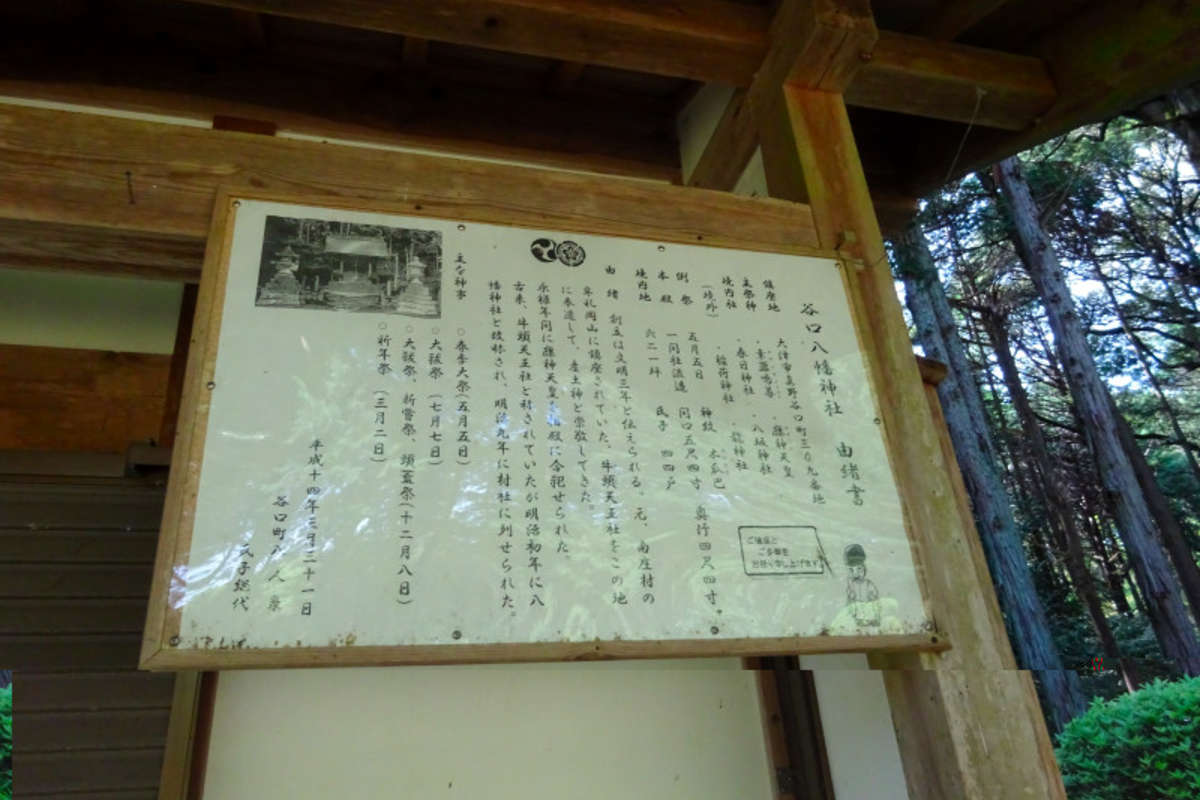 谷口八幡神社 由緒書
鎮座地 大津市真野谷口町三〇九番地
主祭神 ・素盞嗚尊 ・應神天皇
境内社 ・春日神社 ・八坂神社
(境外) ・稲荷神社 ・龍神社
例祭 五月五日 神紋 木瓜巴
本殿 一間社流造 間口五尺四寸 奥行四尺四寸。
境内地 六二一坪 氏子 四四戸
由緒 創立は文明三年と伝えられる。元、南庄村の
牟礼岡山に鎮座されていた、牛頭天王社をこの地
に奉遷して、産土神と崇敬してきた。
永禄年間に應神天皇を殿に合祀せられた。
古来、牛頭天王社と称されていたが明治初年に八
幡神社と改称され、明治九年に村社に列せられた。
主な神事
○春季大祭(五月五日)
○大祓祭(七月七日)
○大祓祭、新嘗祭、頭蓋祭(十二月八日)
○祈年祭(三月二日)
平成十四年三月三十一日
谷口町八人衆
氏子総代
ご清浄と
ご参拝を
お待ち申し上げます